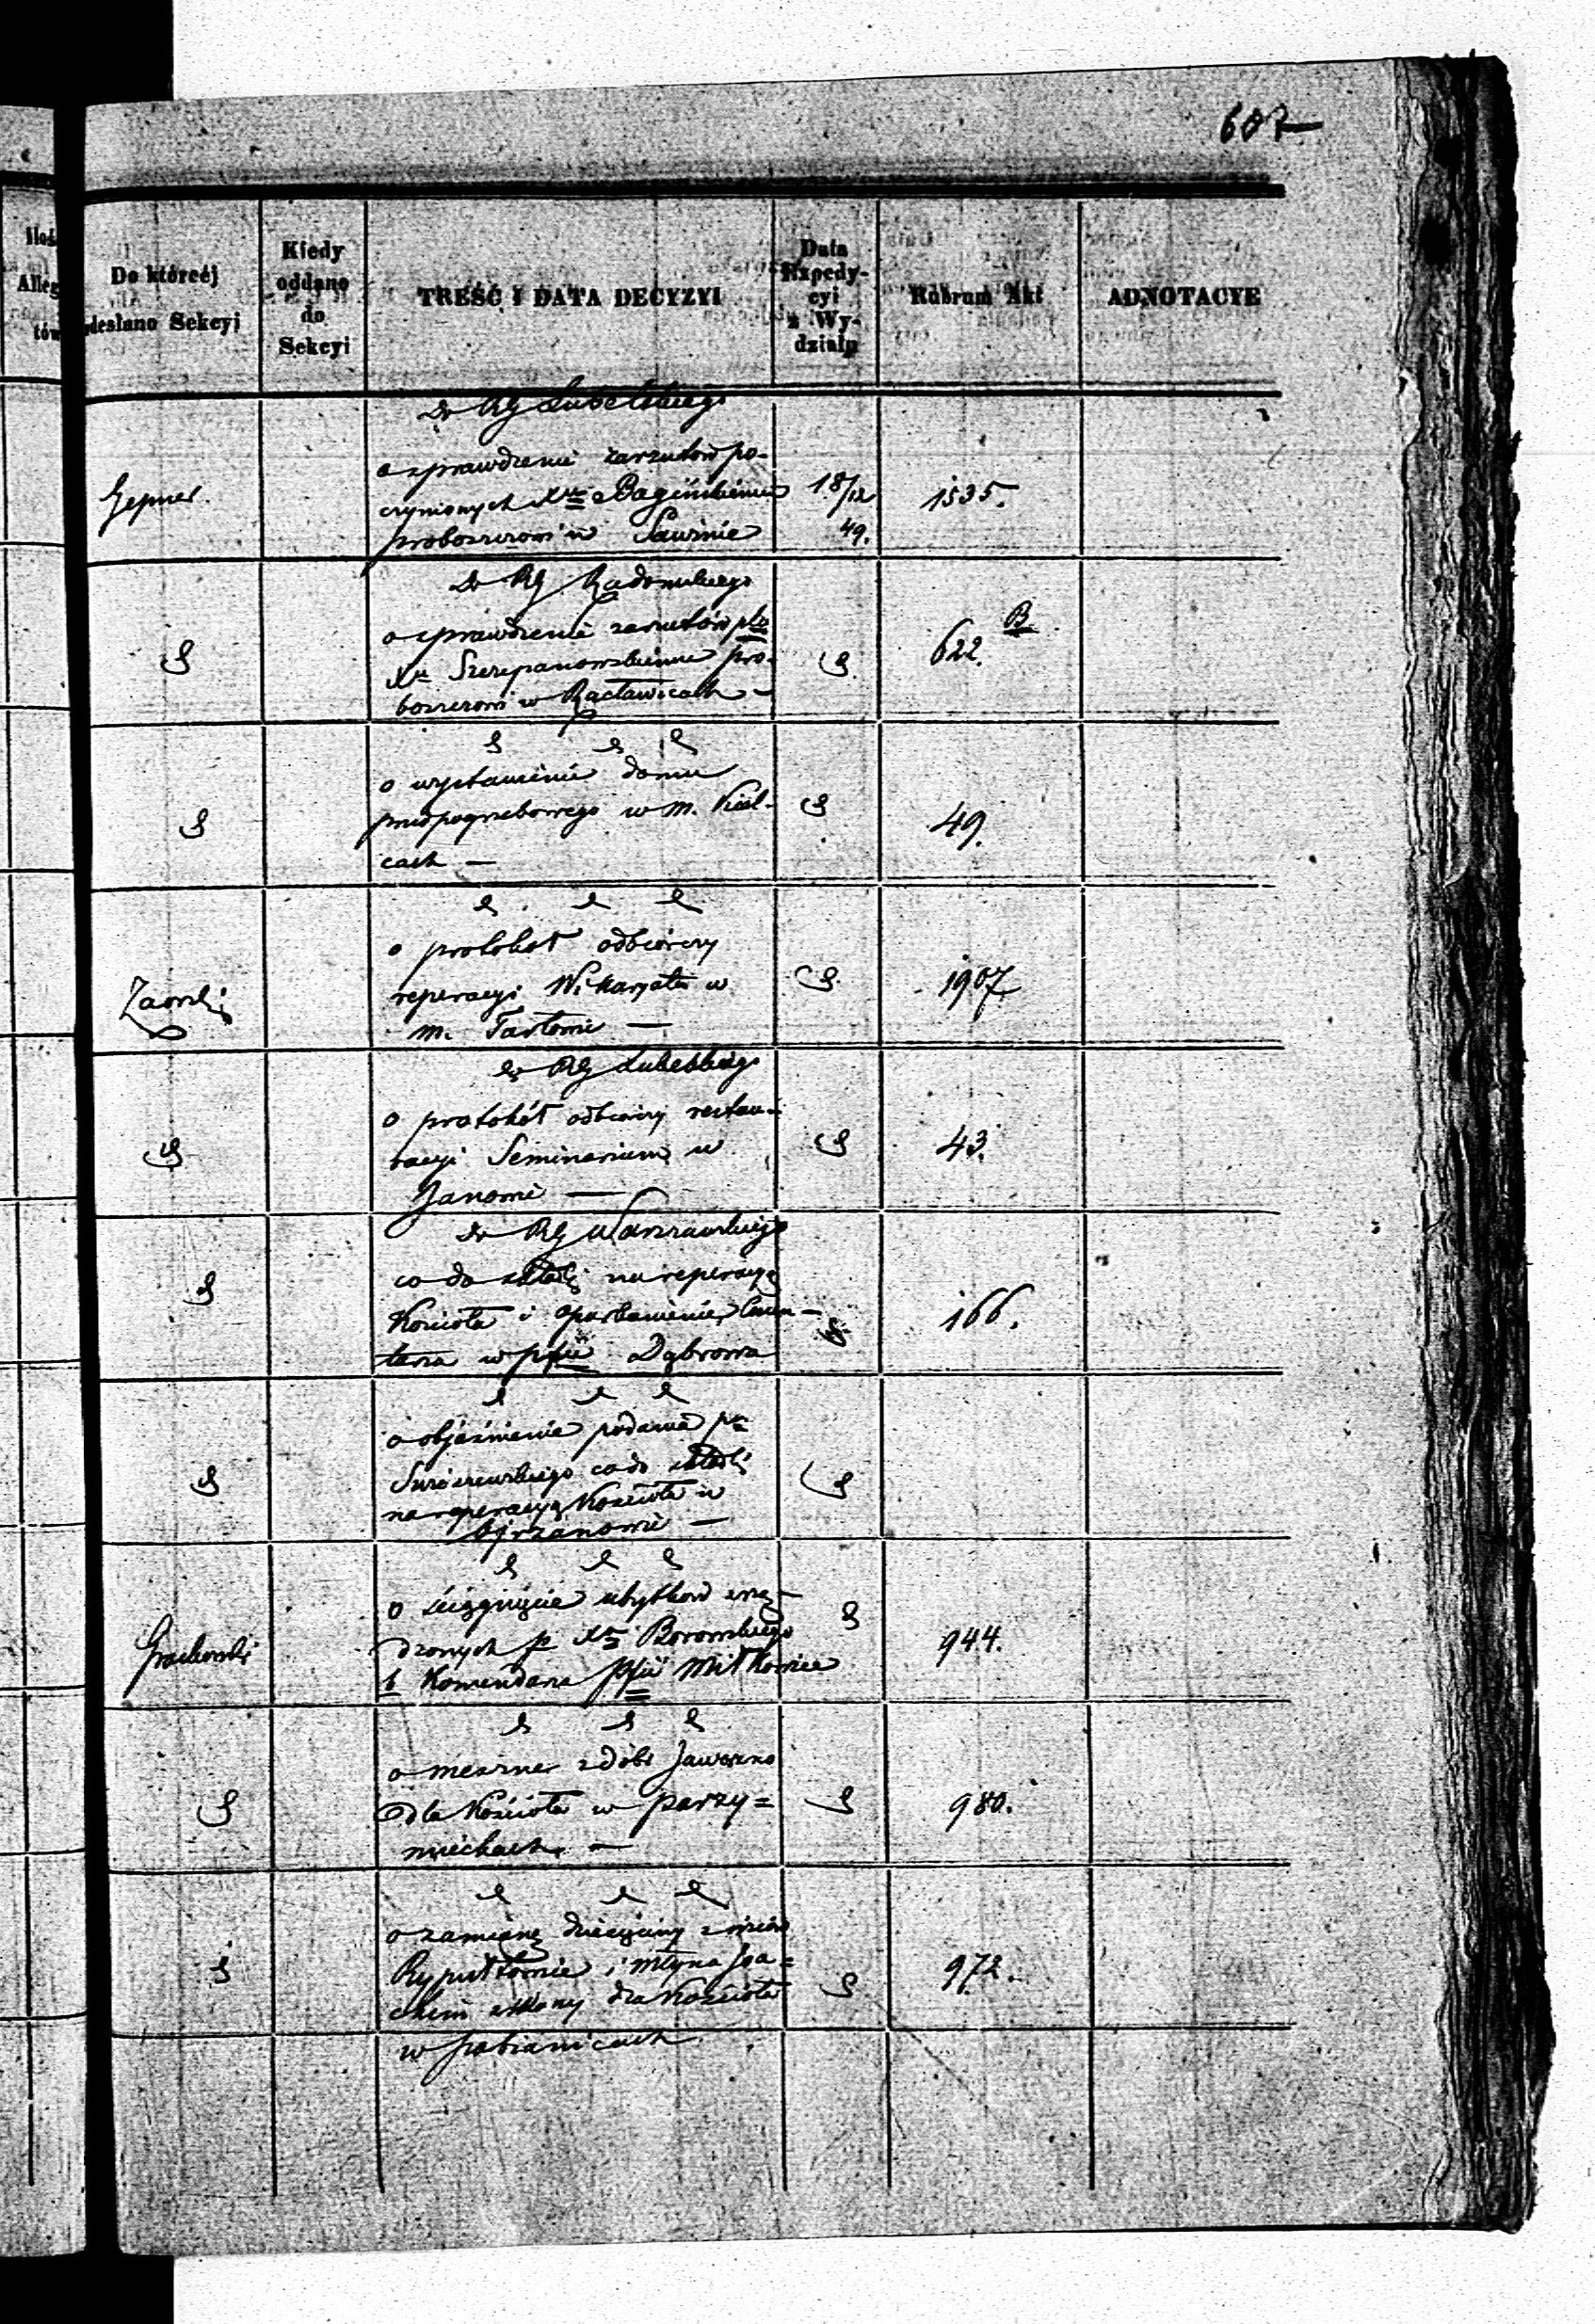 607
Iloś
Alleg
tów
Do któréej
odesłano Sekcyi
Kiedy
oddano
do
Sekcyi
TREŚĆ I DATA DECYZYI
Data
Expedy-
cyi
z Wy-
działu
Rubrum Akt
ADNOTACYE
Do RG Lubelskiego
o sprawdzenie zarzutów po-
czynionych Xu Bagińskiemu
proboszczowi w Sawinie
18/12
49.
1535.
Do RG Radomskiego
o sprawdzenie zarzutów pko
Xu Szczepanowskiemu pro-
boszczowi w Racławicach -
622. B
o wystawienie domu
przedpogrzebowego w m. Kiel-
cach —
49.
o protokół odbiorczy
reperacyi Wikaryatu w
m. Tarłowie —
1907
Do RG Lubelskiego
o protokół odbiorczy restau-
racyi Seminarium w
Janowie —
43.
Do RG Warszawskiego
co do składki na reperacyą
Kościoła i oparkanienie Cmen-
tarza w pfii Dąbrowa
166.
o objaśnienie podania pa
co do składki
na reperacyą Kościoła w
—
o ściągnięcie ubytków zrzą-
dzonych p Xa Borowskiego
b Komendarza pfii Mitkowice
944.
o meszne z dóbr Jaworzno
dla Kościoła w parzy=
miechach. —
980.
o zamianę dziesięciny z wsiów
Rypułtowie i młyna Joa=
chim zwany dla Kościoła
w pabianicach
972.